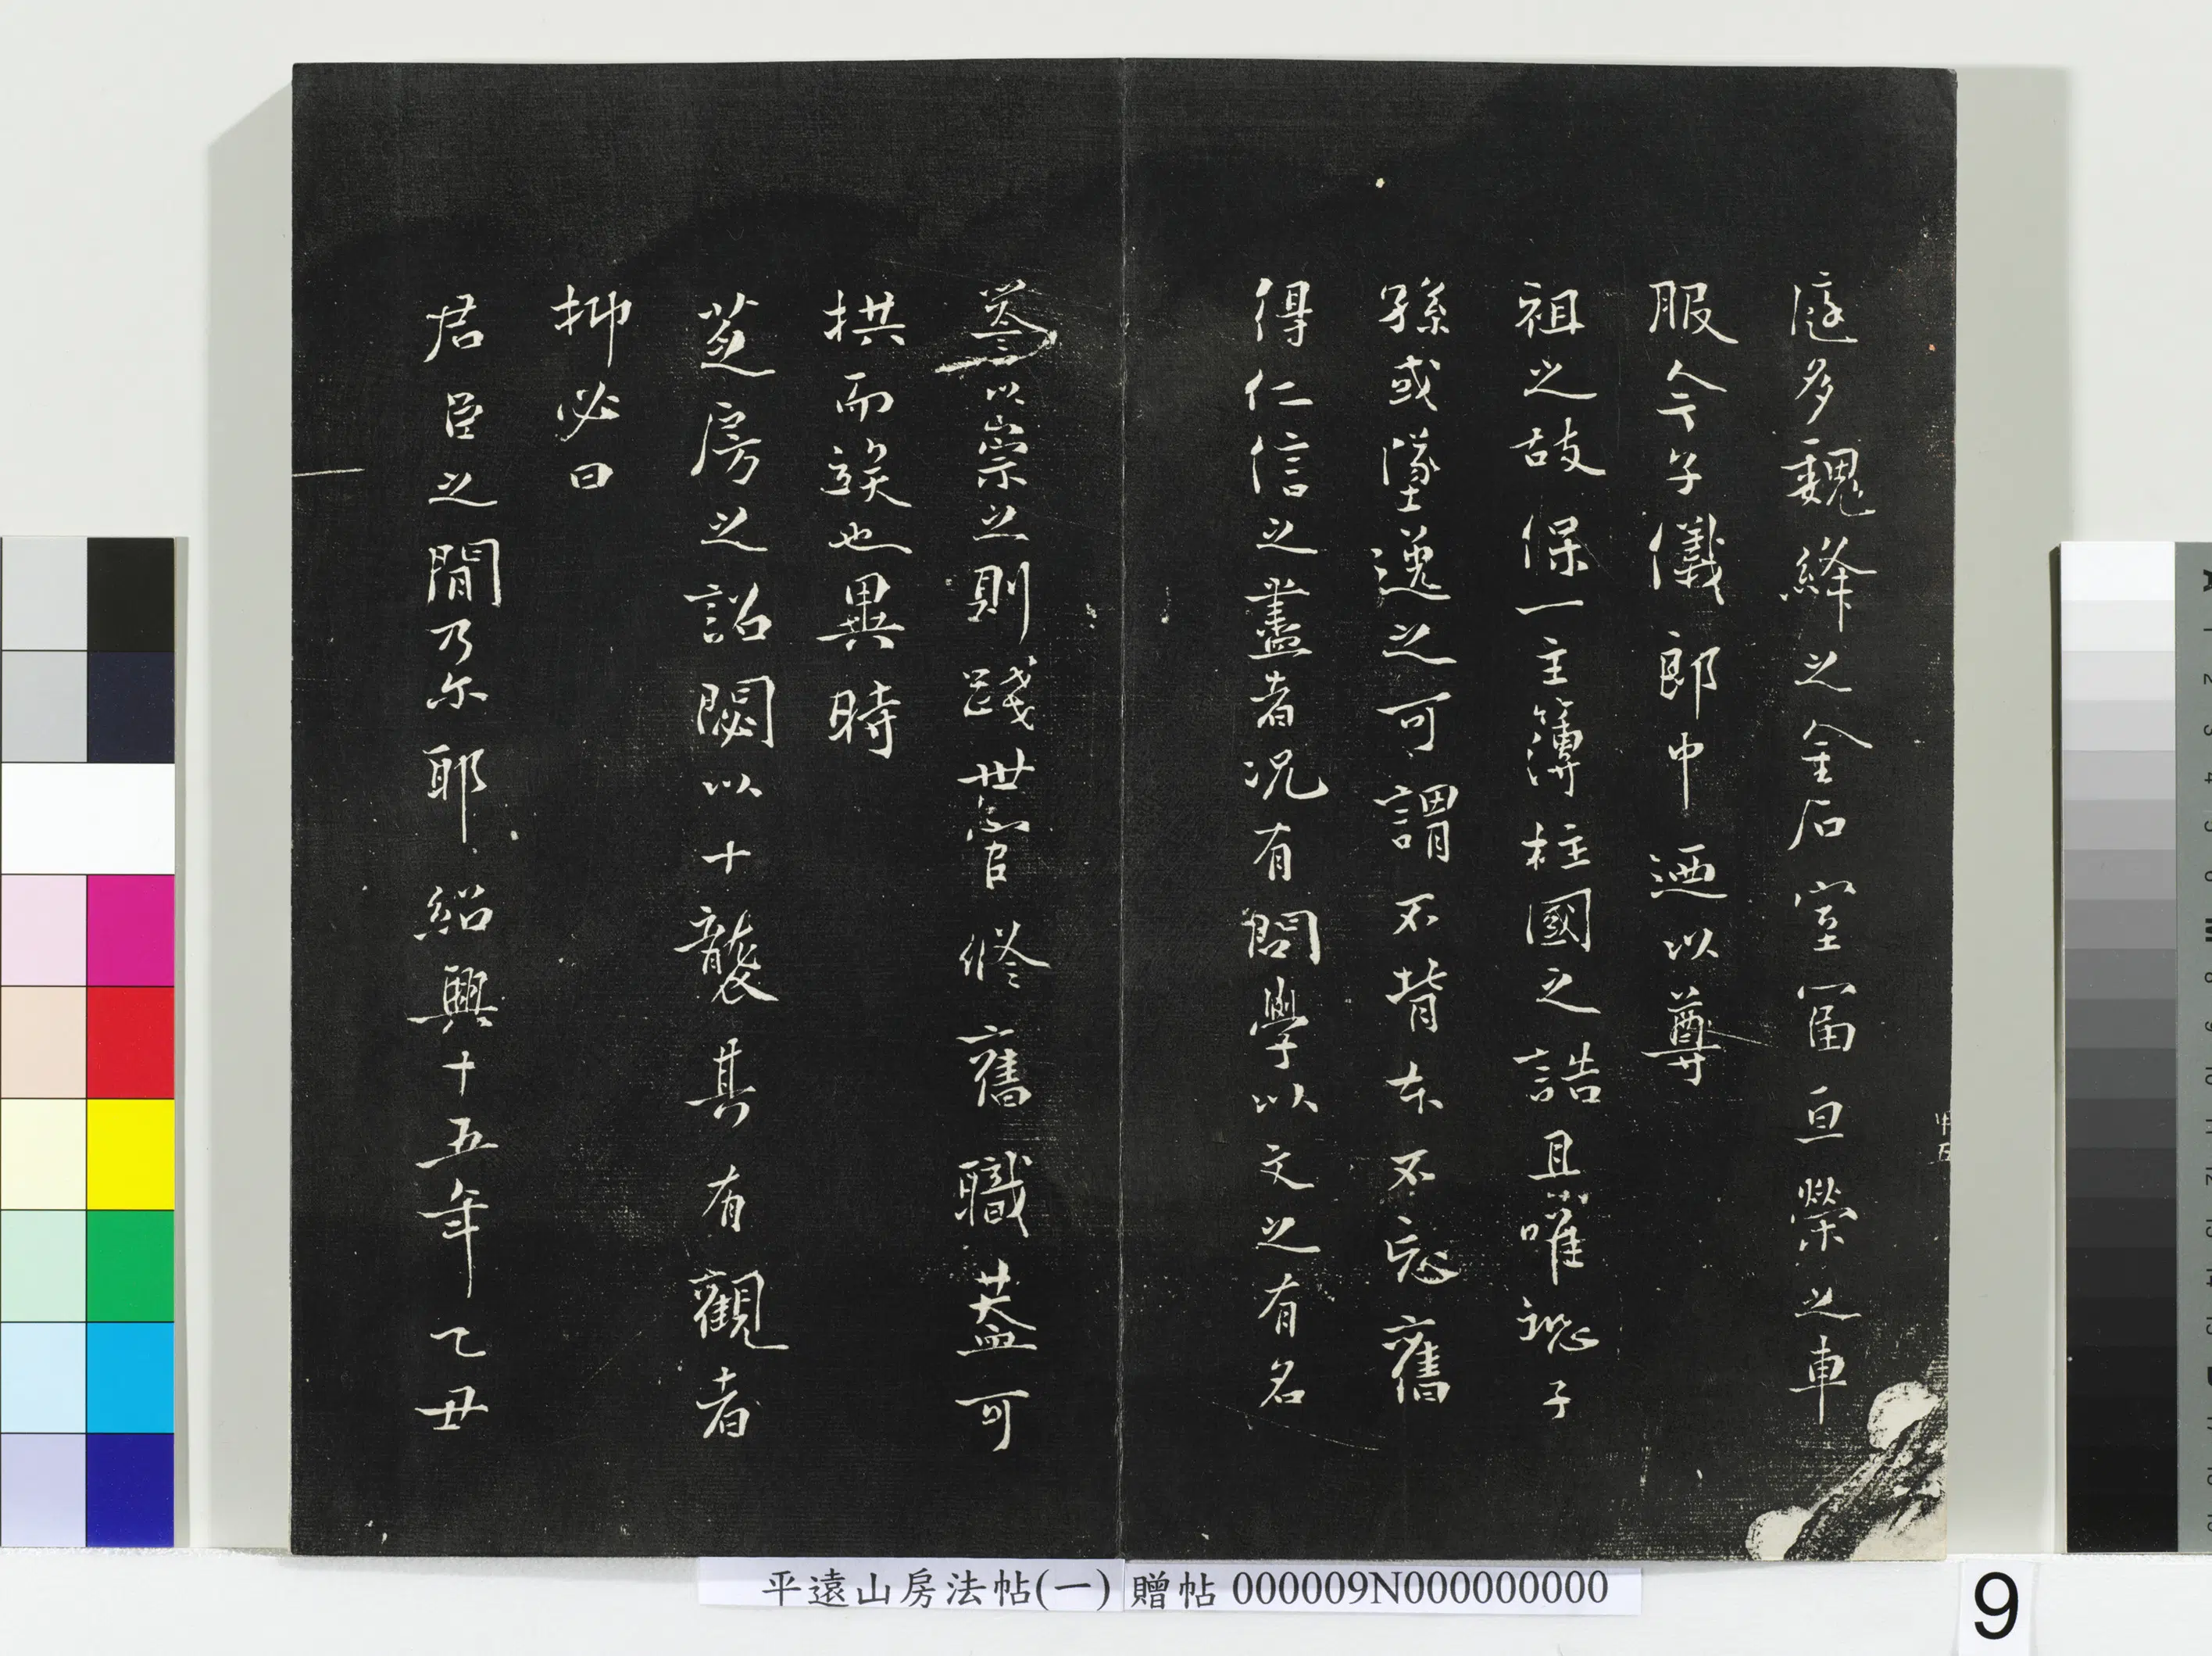 庭多魏絳之金石室富亘榮之車
服今子儀郎中迺以尊
祖之故保一主簿柱國之誥且唯恐子
孫或墜逸之可謂不背本不忘舊
得仁信之盡者況有問學以文之有名
以崇之則踐世官修舊職蓋可
拱而竢也異時
芝房之詔閟以十襲其有觀者
抑必曰
君臣之間乃尔耶紹興十五年乙丑
平遠山房法帖(一) 贈帖 000009N000000000
9